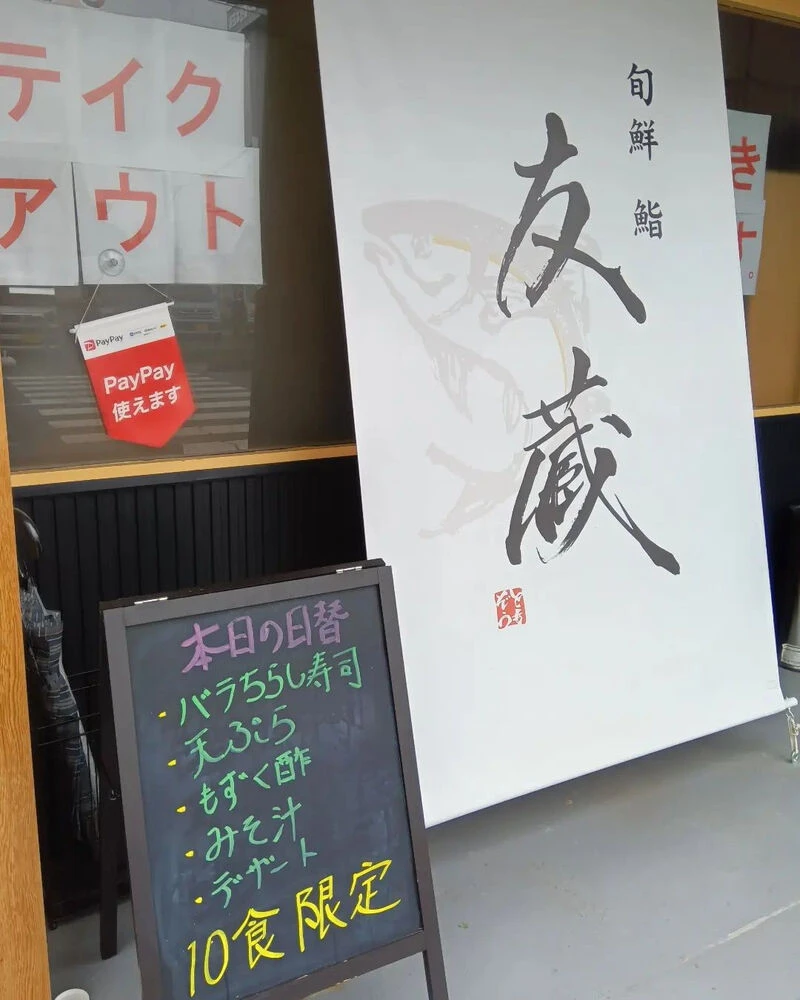 テイク
アウト
PayPay
PayPay
使えます
旬鮮 鮨
友蔵
き
す。
本日の日替
・バラちらし寿司
・天ぷら
・もずく酢
・みそ汁
・デザート
10食限定